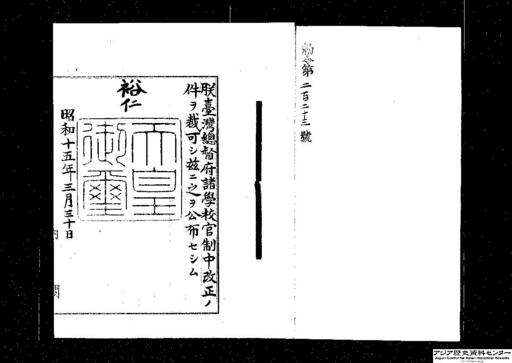 勅令第二百二十三號
朕臺灣總督府諸學校官制中改正ノ
件ヲ裁可シ玆ニ之ヲ公布セシム
裕仁
天皇
御璽
昭和十五年三月三十日
内閣
アジア歴史資料センター
Japan Center for Asian Historical Records